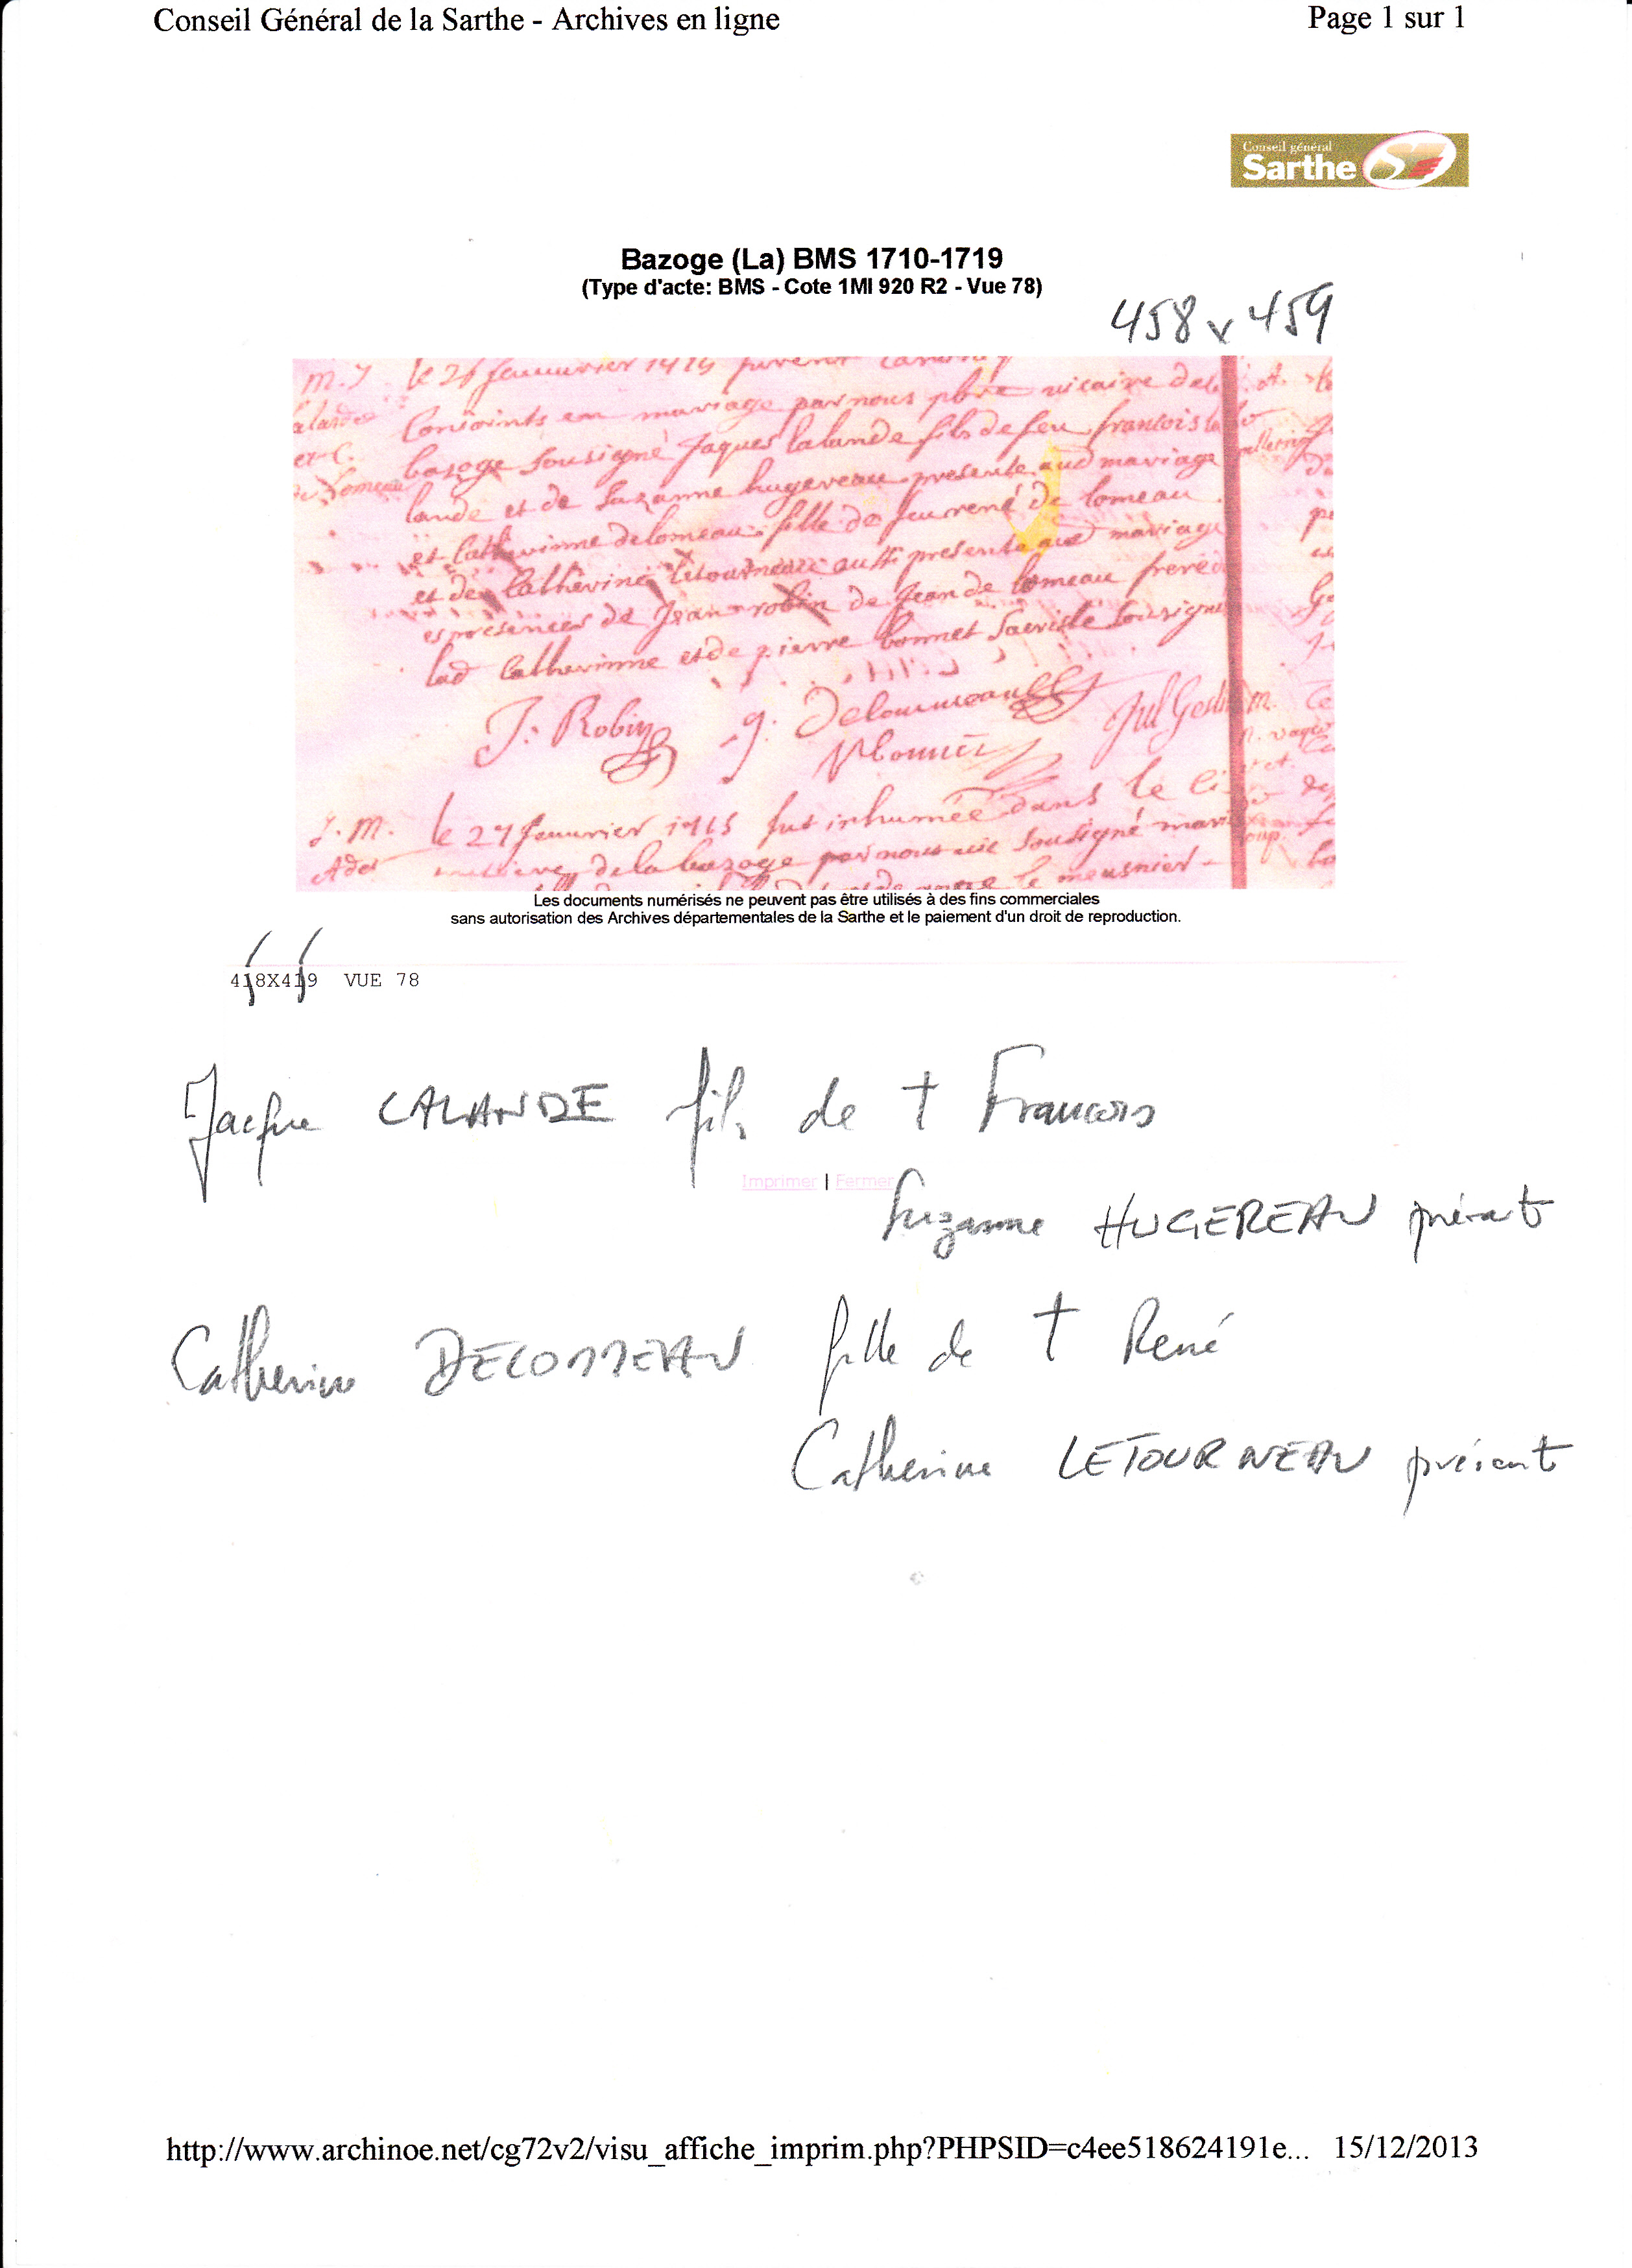 Conseil Général de la Sarthe - Archives en ligne Page 1 sur 1
Conseil général
Sarthe
Bazoge (La) BMS 1710-1719
(Type d'acte: BMS - Cote 1MI 920 R2 - Vue 78)
458 x 459
m. J le 26 furent
Conioints en mariage par nous pbre vicaire de la
et C. bazoge sousigné Jaques lalande fils de feu francois la
lande et de Suzanne hugereau presente aud mariage
et Catherinne delomeau fille de feu rené de lomeau
et de Catherine letourneau aussi presente aud mariage
es presences de Jean robin de Jean de lomeau frere de
lad Catherinne et de pierre bonnet Sacriste sousignes
J. Robin J. Delommeau Jul Gesl
P bonnet
J. M. le 27 1715 fut inhumée dans le ci
de la bazoge par nous sousigné
le meusnier
Les documents numérisés ne peuvent pas être utilisés à des fins commerciales
sans autorisation des Archives départementales de la Sarthe et le paiement d'un droit de reproduction.
458X459 VUE 78
Jacque LALANDE fils de † Francois
Imprimer | Fermer
Suzanne HUGEREAU présente
Catherine DELOMMEAU fille de † René
Catherine LETOURNEAU présente
http://www.archinoe.net/cg72v2/visu_affiche_imprim.php?PHPSID=c4ee518624191e... 15/12/2013